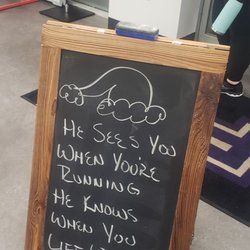 He Sees You
When You're
Running
He Knows
When You